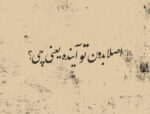 اصلا بدون تو آینده یعنی چی؟